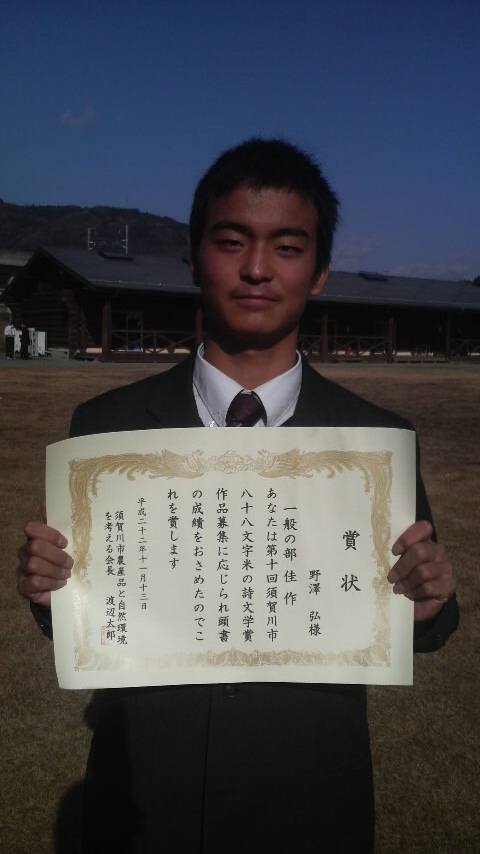 賞状
野澤 弘様
一般の部 佳作
あなたは第十回須賀川市
八十八文字米の詩文学賞
作品募集に応じられ頭書
の成績をおさめたのでこ
れを賞します
平成二十二年十一月十三日
須賀川市農産品と自然環境
を考える会長 渡辺太郎